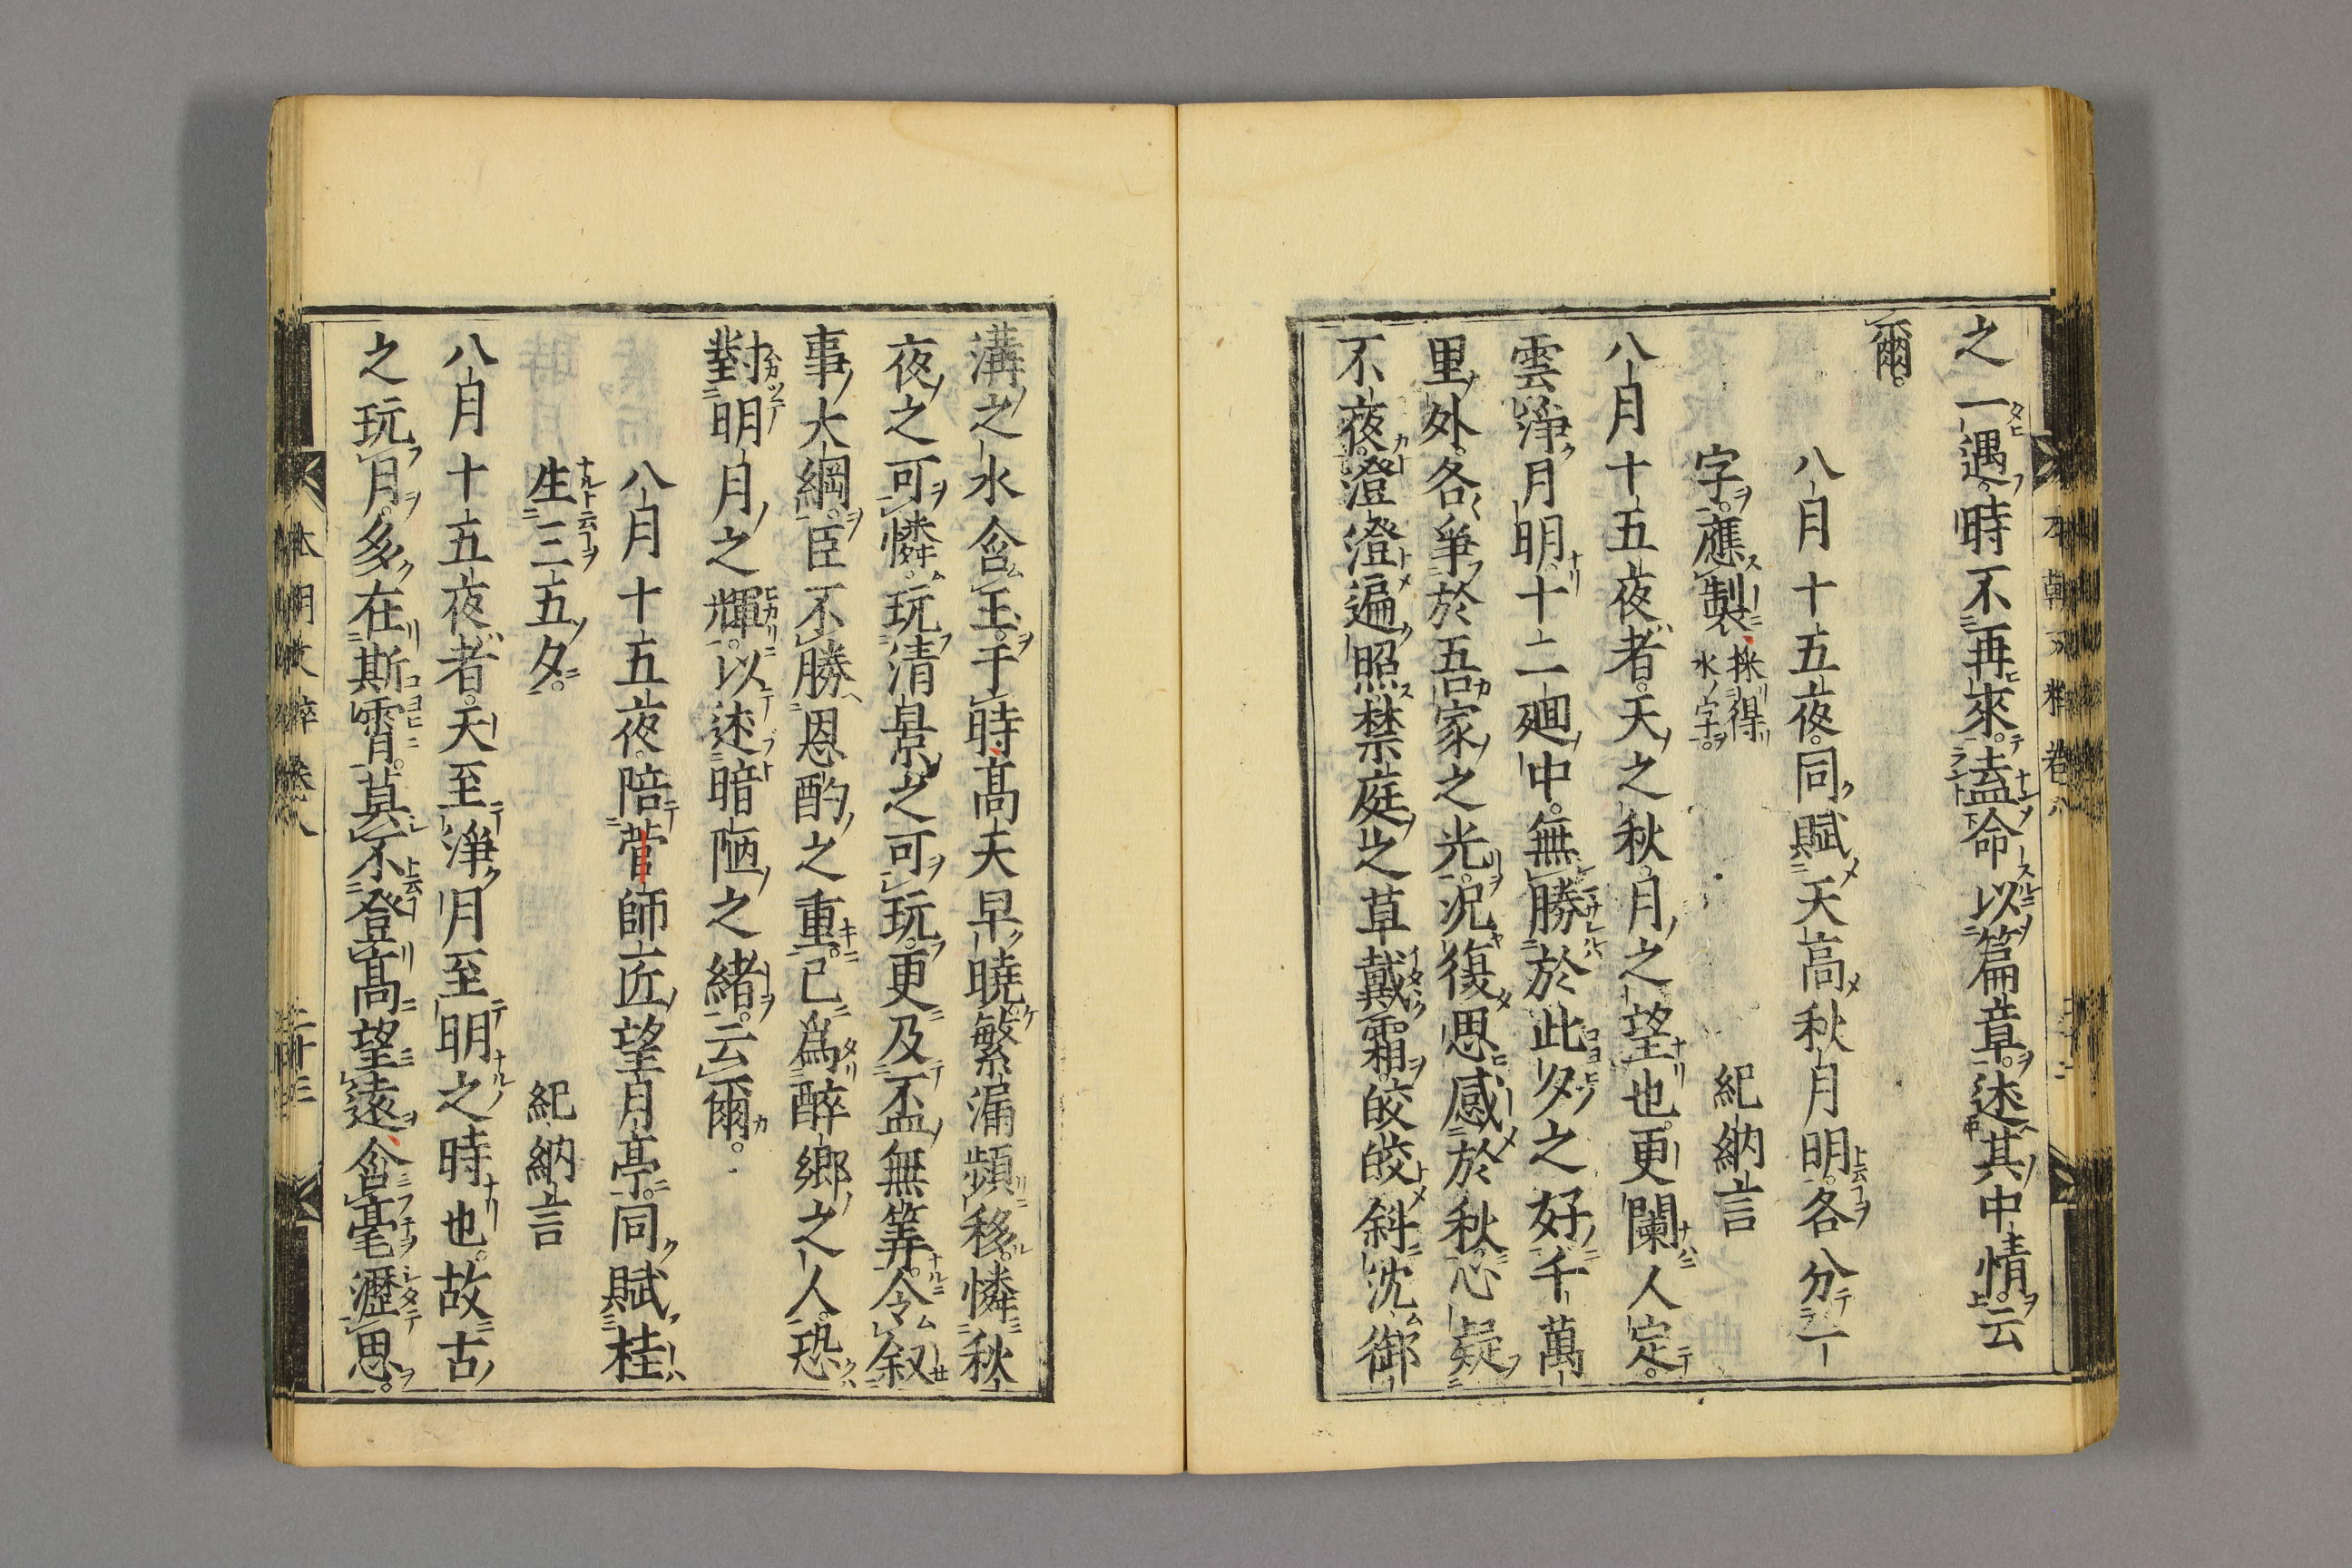 之一遇。時不再來。盍命以篇章。述其中情。云
爾。
八月十五夜。同賦天高秋月明。各分一
字。應製、探得水字。 紀納言
八月十五夜者。天之秋。月之望也。更闌人定。
雲淨月明。十二廻中。無勝於此夕之好。千萬
里外。各爭於吾家之光。況復思感於秋。心疑
不夜。澄澄遍照。禁庭之草戴霜。皎皎斜沈。御
溝之水含玉。于時高天早曉。繁漏頻移。憐秋
夜之可憐。玩清景之可玩。更及盃無筭。令叙
事大綱。臣不勝恩酌之重。已爲醉鄉之人。恐
對明月之輝。以述暗陋之緒。云爾。
八月十五夜。陪菅師匠望月亭。同賦桂
生三五夕。 紀納言
八月十五夜者。天至淨月至明之時也。故古
之玩月。多在斯霄。莫不登高望遠、含毫瀝思。
本朝文粹卷八
二十三